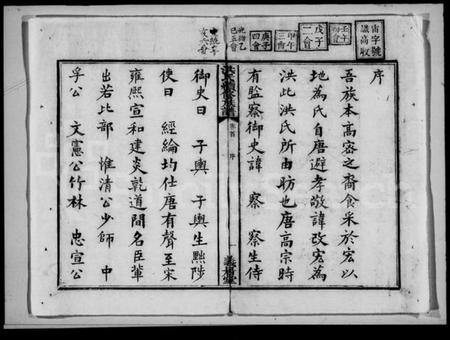 序
吾族本高密之裔食采於宏以
地為氏自唐避孝敬諱改宏為
洪此洪氏所由昉也唐高宗時
有監察御史諱 察 察生侍
御史曰 子輿 子輿生黜陟
使曰 經綸均仕唐有聲至宋
雍熙宣和建炎乾道間名臣輩
出若比部 惟清公少師 中
孚公 文憲公竹林 忠宣公
卷首 序
一
戊子
二會
甲午
三會
庚子
四會
壬午